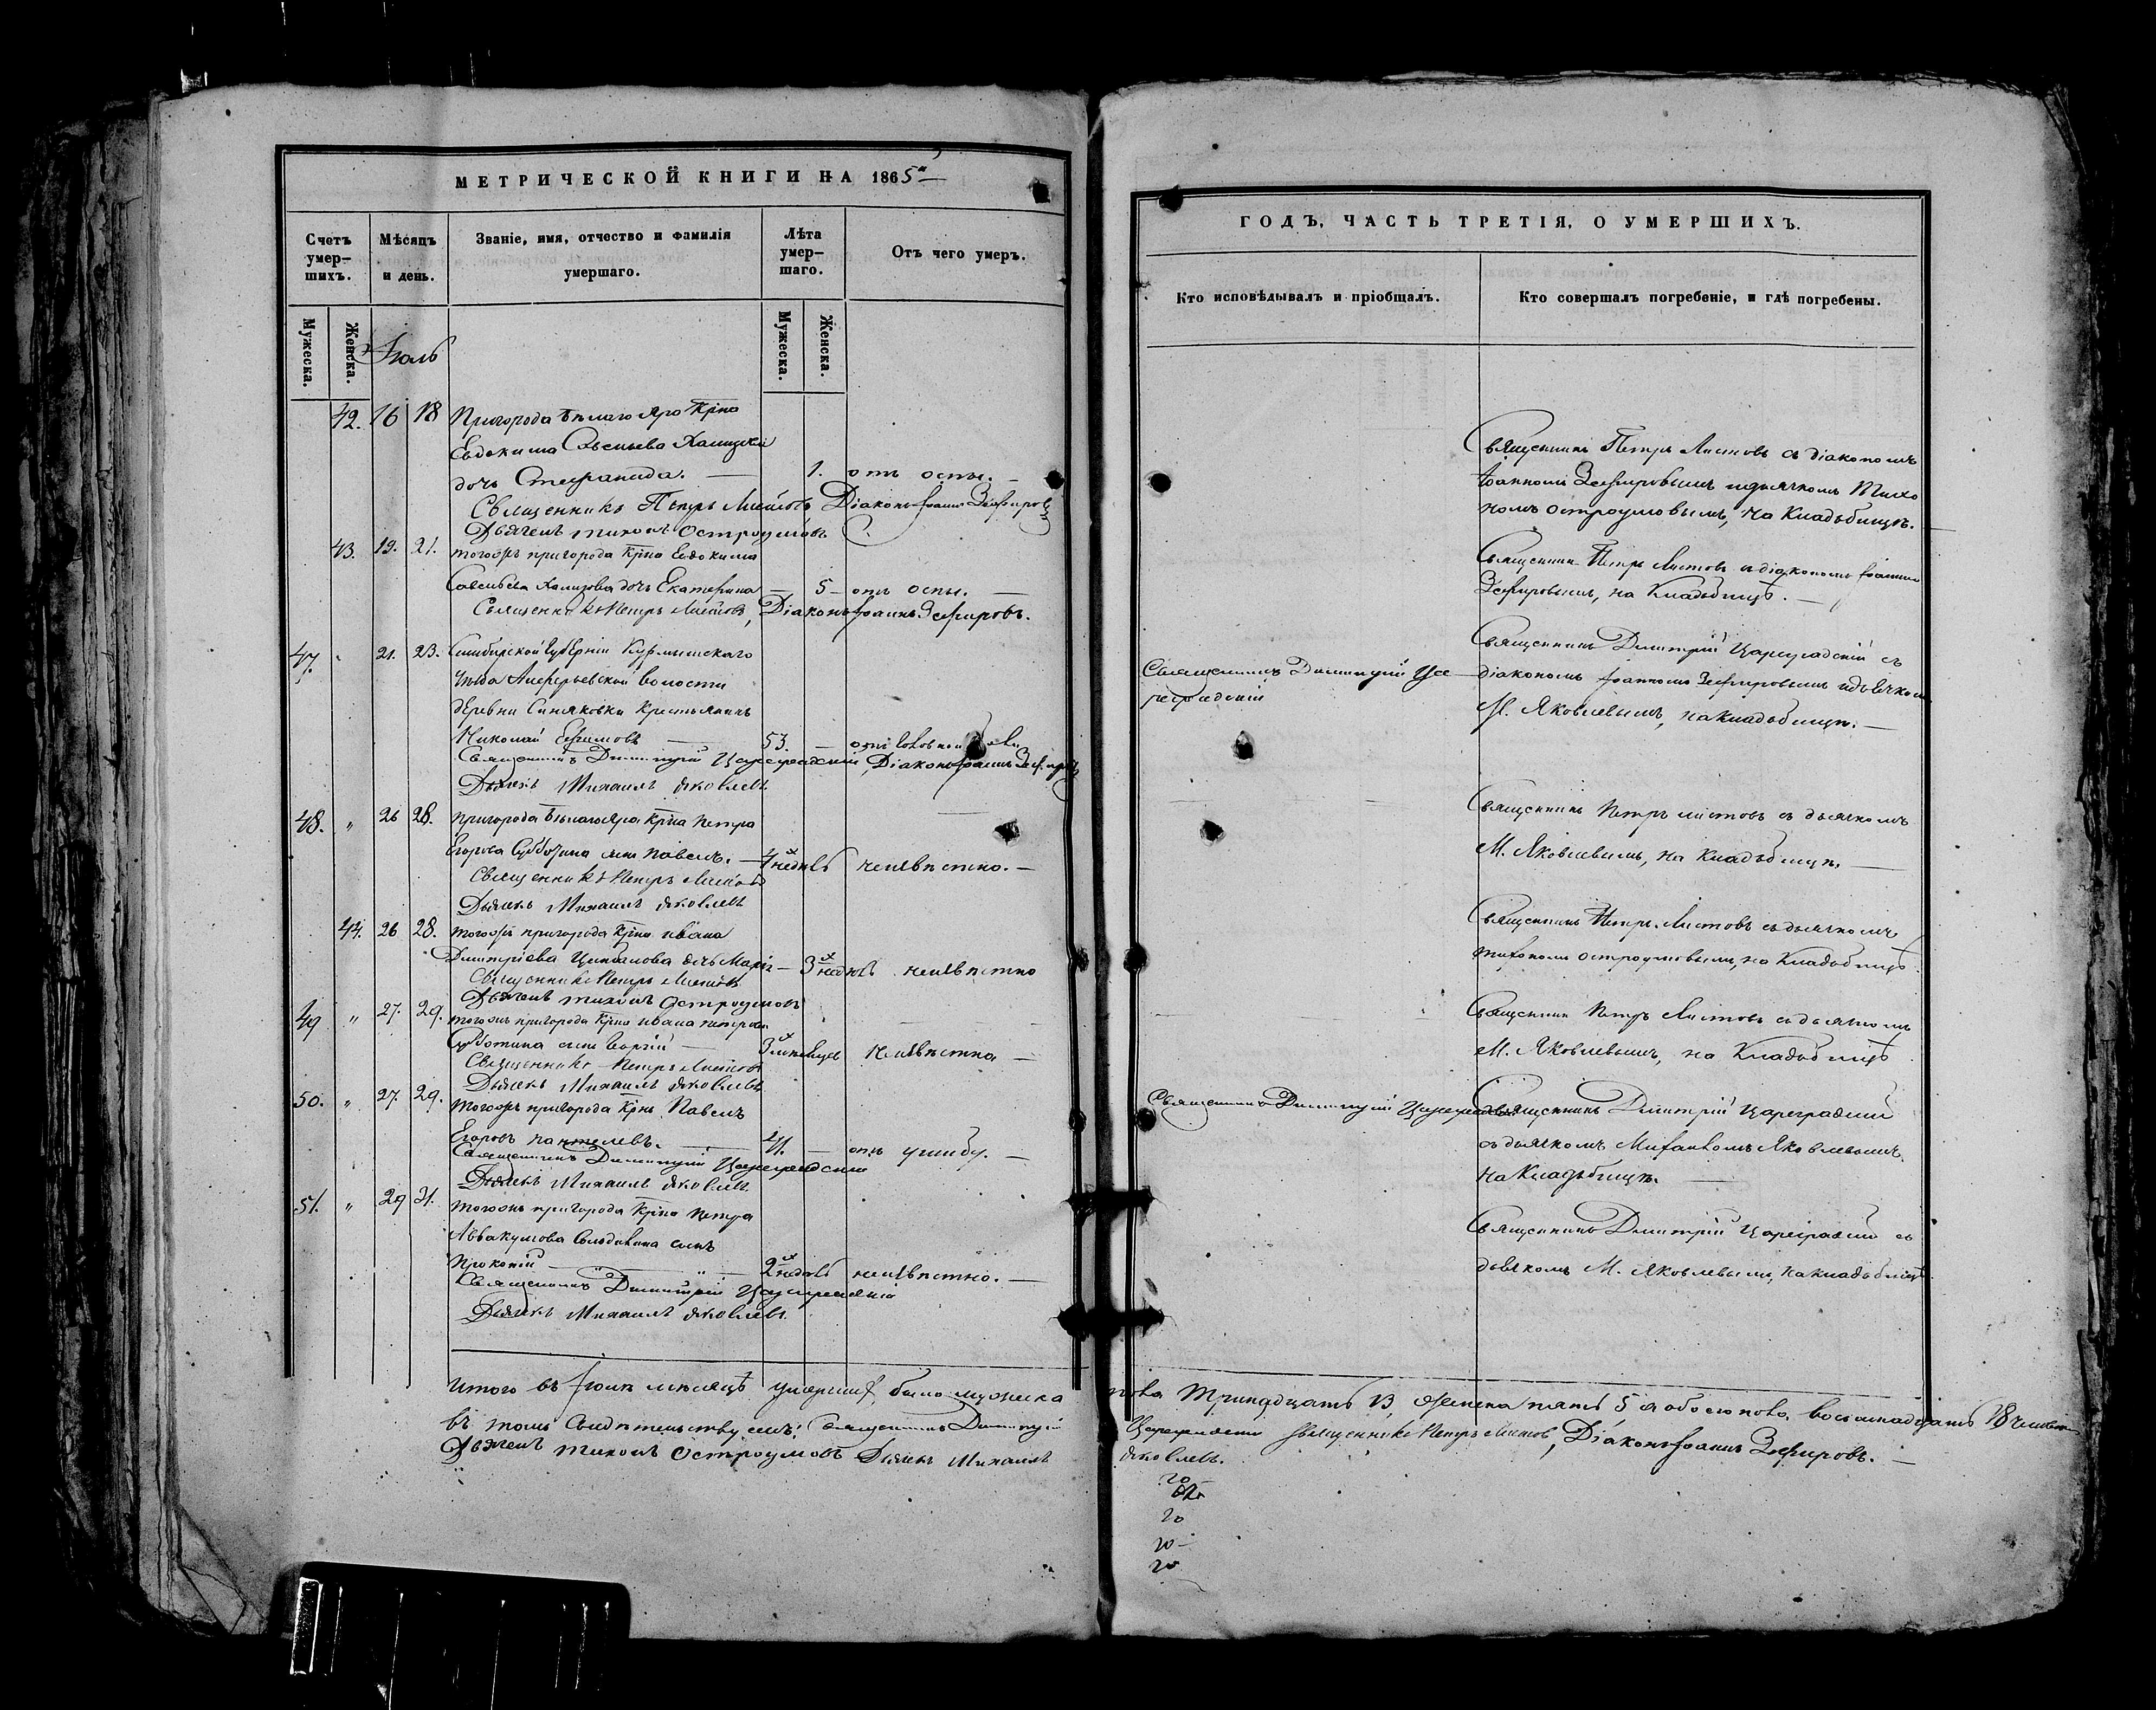 МЕТРИЧЕСКОЙ КНИГИ НА 1865
Счетъ умер-шихъ.
Мѣсяцъ и день.
Званіе, имя, отчество и фамилія умершаго.
Лѣта умер-шаго.
Отъ чего умеръ.
Мужеска.
Женска.
Мужеска.
Женска.
Іюль
42. 16 18 Пригорода Бѣлаго Яра Крнa
Евдокима Савельева
дочь Стефанида. — 1. отъ оспы. —
Священникъ Петръ Листовъ Діаконъ Іоаннъ Зефировъ
Дьячекъ Тихонъ Остроумовъ
43. 19. 21. тогожъ пригорода Крнa Евдокима
Савельева дочь Екатерина — 5 — отъ оспы. —
Священникъ Петръ Листовъ, Діаконъ Іоаннъ Зефировъ.
47. 21. 23. Симбирской Губерніи Курмышскаго
уѣзда Алферьевской волости
деревни Синяковки Крестьянинъ
Николай Ефимовъ — 53. —
Священникъ Димитрій Цареградскій, Діаконъ Іоаннъ Зефировъ
Дьячекъ Михаилъ Яковлевъ
48. " 26 28. пригорода Бѣлаго Яра Крнa Петра
Егорова Субботина сынъ Павелъ. — 4хъ недѣль неизвѣстно. —
Священникъ Петръ Листовъ
Дьячекъ Михаилъ Яковлевъ
44. 26 28. тогожъ пригорода Крнa Ивана
Димитріева дочь Марія — 3хъ недѣль неизвѣстно
Священникъ Петръ Листовъ
Дьячекъ Тихонъ Остроумовъ
49 " 27. 29. тогожъ пригорода Крнa Ивана Петрова
Субботина сынъ — 3хъ неизвѣстно —
Священникъ Петръ Листовъ
Дьячекъ Михаилъ Яковлевъ
50. " 27. 29. тогожъ пригорода Крнъ Павелъ
Егоровъ Пантелевъ. — 41. — отъ ушибу. —
Священникъ Димитрій Цареградскій
Дьячекъ Михаилъ Яковлевъ
51. " 29 31. тогожъ пригорода Крнa Петра
Аввакумова сынъ
Прокопій — " — 2хъ недѣль неизвѣстно. —
Священникъ Димитрій Цареградскій
Дьячекъ Михаилъ Яковлевъ.
ГОДЪ, ЧАСТЬ ТРЕТІЯ, О УМЕРШИХЪ.
Кто исповѣдывалъ и пріобщалъ.
Кто совершалъ погребеніе, и гдѣ погребены.
Священникъ Петръ Листовъ съ діакономъ
Іоанномъ Зефировымъ и дьячкомъ Тихо
номъ Остроумовымъ, на Кладбищѣ.
Священникъ Петръ Листовъ съ діакономъ Іоанномъ
Зефировымъ, на Кладбищѣ. —
Священникъ Димитрій Ца
реградскій
Священникъ Димитрій Цареградскій съ
діакономъ Іоанномъ Зефировымъ и дьячкомъ
М. Яковлевымъ, на Кладбищѣ. —
Священникъ Петръ Листовъ съ дьячкомъ
М. Яковлевымъ, на Кладбищѣ. —
Священникъ Петръ Листовъ съ дьячкомъ
Тихономъ Остроумовымъ, на Кладбищѣ.
Священникъ Петръ Листовъ съ дьячкомъ
М. Яковлевымъ, на Кладбищѣ
Священникъ Димитрій Цареградскій
Священникъ Димитрій Цареградскій
съ дьячкомъ Михаиломъ Яковлевымъ.
на Кладбищѣ. —
Священникъ Димитрій Цареградскій съ
дьячкомъ М. Яковлевымъ, на кладбищѣ.
Итого въ Іюлѣ мѣсяцѣ умершихъ было мужеска пола тринадцать 13, женска пять 5 а обоего пола восемнадцать 18 человекъ
въ томъ свидѣтельствуемъ: Священникъ Димитрій Цареградскій Священникъ Петръ Листовъ, Діаконъ Іоаннъ Зефировъ. —
Дьячекъ Тихонъ Остроумовъ Дьячекъ Михаилъ Яковлевъ.
20
20
20
20